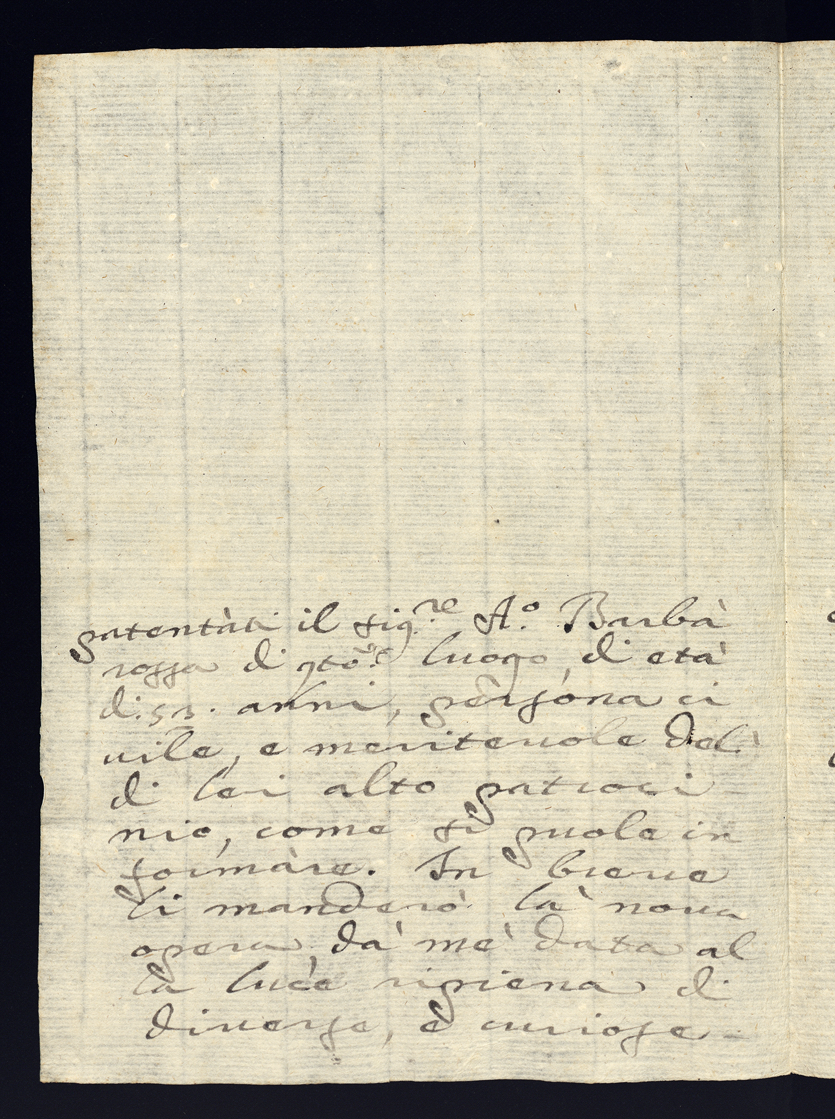 patentàti il sig.re A.o Barbà
rossa di qto.. luogo, di età
di 53. anni, persona ci
uile, e meriteuole del
di lei alto patroci
nio, come si puole in
formare. In breue
li manderò là noua
opera da mè data al
la luce ripiena di
diuerse, è curiose -